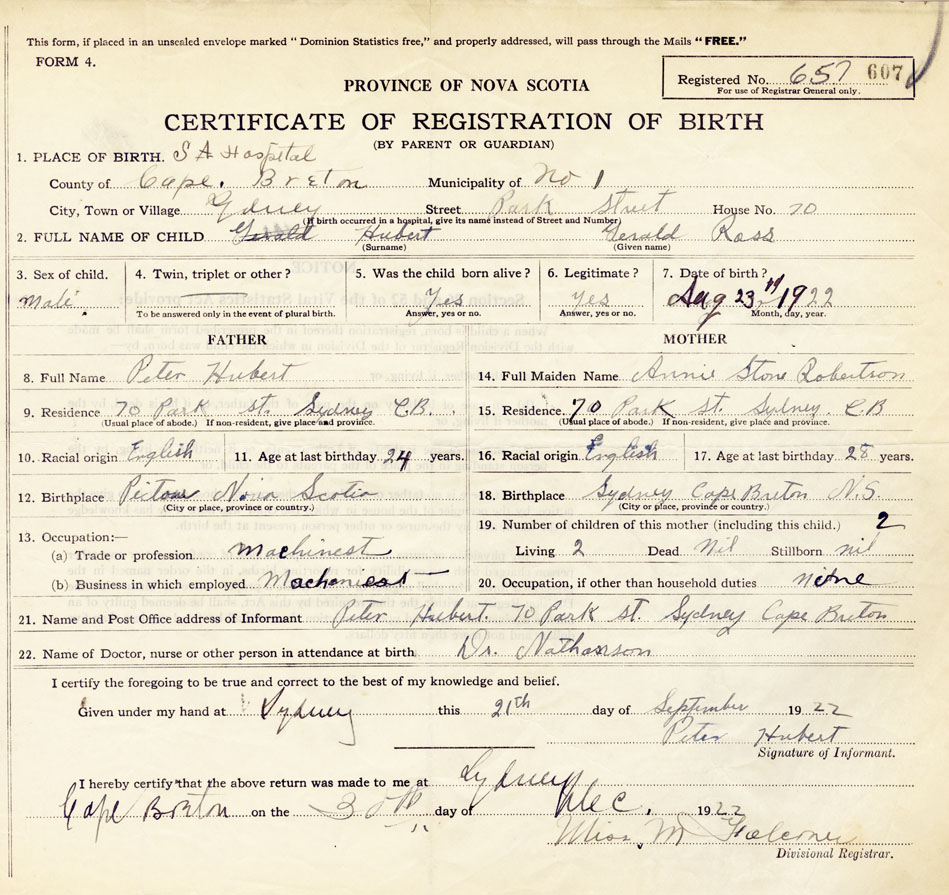 This form, if placed in an unsealed envelope marked " Dominion Statistics free," and properly addressed, will pass through the Mails "FREE."
FORM 4.
Registered No. 657 607
For use of Registrar General only.
PROVINCE OF NOVA SCOTIA
CERTIFICATE OF REGISTRATION OF BIRTH
(BY PARENT OR GUARDIAN)
1. PLACE OF BIRTH. S A Hospital
County of Cape Breton Municipality of No 1
City, Town or Village Sydney Street Park Street House No. 70
(If birth occurred in a hospital, give its name instead of Street and Number)
2. FULL NAME OF CHILD Gerald Hubert Gerald Ross
(Surname) (Given name)
3. Sex of child. 4. Twin, triplet or other? 5. Was the child born alive? 6. Legitimate? 7. Date of birth?
Male Yes Yes Aug 23 1922
To be answered only in the event of plural birth. Answer, yes or no. Answer, yes or no. Month, day, year.
FATHER MOTHER
8. Full Name Peter Hubert 14. Full Maiden Name Annie Stone Robertson
9. Residence 70 Park St. Sydney C.B. 15. Residence. 70 Park St Sydney. C.B
(Usual place of abode.) If non-resident, give place and province. (Usual place of abode.) If non-resident, give place and province.
10. Racial origin English 11. Age at last birthday 24 years. 16. Racial origin English 17. Age at last birthday 28 years.
12. Birthplace Pictou Nova Scotia 18. Birthplace Sydney Cape Breton N.S.
(City or place, province or country.) (City or place, province or country.)
13. Occupation:— 19. Number of children of this mother (including this child.) 2
(a) Trade or profession machinest Living 2 Dead Nil Stillborn nil
(b) Business in which employed Machenest 20. Occupation, if other than household duties none
21. Name and Post Office address of Informant Peter Hubert. 70 Park St. Sydney Cape Breton
22. Name of Doctor, nurse or other person in attendance at birth. Dr. Nathanson
I certify the foregoing to be true and correct to the best of my knowledge and belief.
Given under my hand at Sydney this 21th day of September 1922
Peter Hubert
Signature of Informant.
I hereby certify that the above return was made to me at Sydney
Cape Breton on the 30th day of Dec. 1922
Miss M Falconer
Divisional Registrar.